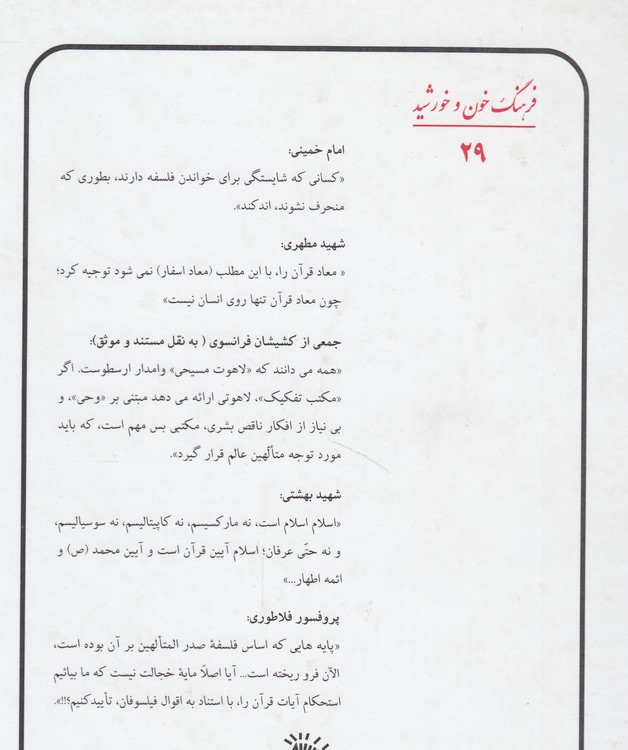 فرهنگ خون و خورشید
۲۹
امام خمینی:
«کسانی که شایستگی برای خواندن فلسفه دارند، بطوری که
منحرف نشوند، اندکند».
شهید مطهری:
« معاد قرآن را، با این مطلب (معاد اسفار) نمی شود توجیه کرد؛
چون معاد قرآن تنها روی انسان نیست»
جمعی از کشیشان فرانسوی ( به نقل مستند و موثق):
«همه می دانند که «لاهوت مسیحی» وامدار ارسطوست. اگر
«مکتب تفکیک»، لاهوتی ارائه می دهد مبتنی بر «وحی»، و
بی نیاز از افکار ناقص بشری، مکتبی بس مهم است، که باید
مورد توجه متألّهین عالم قرار گیرد».
شهید بهشتی:
«اسلام اسلام است، نه مارکسیسم، نه کاپیتالیسم، نه سوسیالیسم،
و نه حتّی عرفان؛ اسلام آیین قرآن است و آیین محمد (ص) و
ائمه اطهار...»
پروفسور فلاطوری:
«پایه هایی که اساس فلسفهٔ صدر المتألهین بر آن بوده است،
الآن فرو ریخته است... آیا اصلاً مایهٔ خجالت نیست که ما بیائیم
استحکام آیات قرآن را، با استناد به اقوال فیلسوفان، تأییدکنیم؟!!».